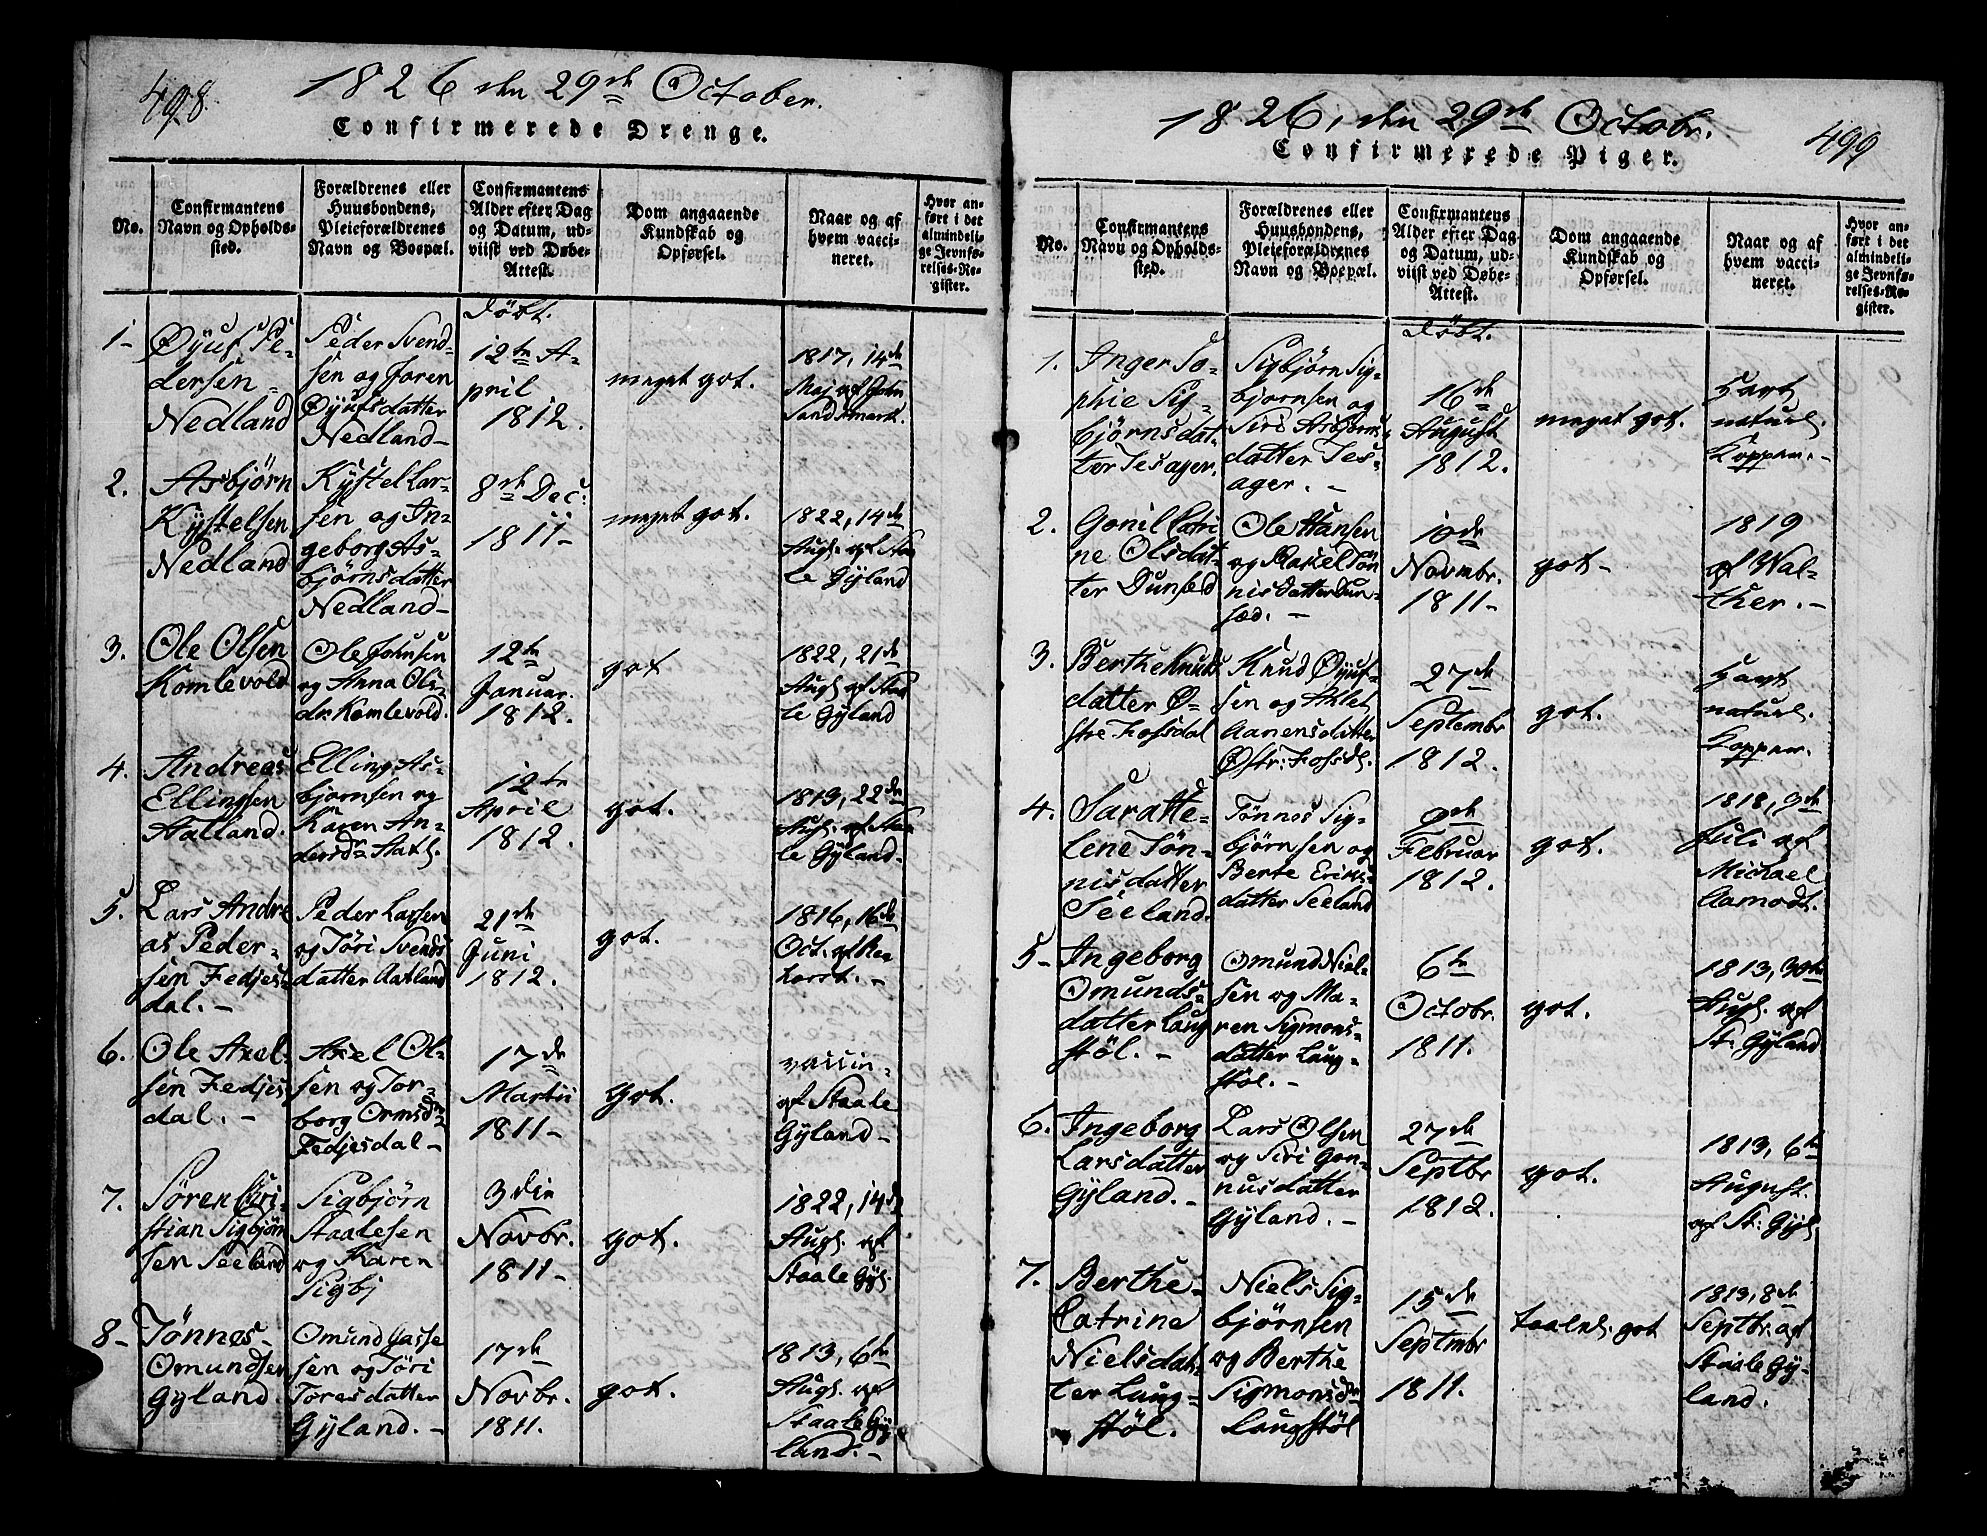 498.
1826 den 29de October.
Confirmerede Drenge.
No.
Confirmantens
Navn og Opholds-
sted.
Forældrenes eller
Huusbondens,
Pleieforældrenes
Navn og Boepæl.
Confirmantens
Alder efter Dag
og Datum, ud-
viist ved Døbe-
Attest.
Dom angaaende
Kundskab og
Opførsel.
Naar og af
hvem vacci-
neret.
Hvor an-
ført i det
almindeli-
ge Jevnfø-
relses-Re-
gister.
döbt.
1-
Øyuf Pe-
dersen
Nedland
Peder Svend-
sen og Joren
Øyufsdatter
Nedland-
12te A-
pril
1812.
meget got.
1817, 14de
Maj af
2.
Asbjørn
Kystelsen
Nedland
Kystel Lar-
sen og In-
geborg As-
bjørnsdatter
Nedland-
8de Dec:
1811-
meget got.
1822, 14de
Augs. af Staa-
le Gyland
3.
Ole Olsen
Komlevold
Ole Johnsen
og Anna Ols-
dr. Komlevold.
12te
Januar.
1812.
got
1822, 21de
Augs. af Staa-
le Gyland
4.
Andreas
Ellingsen
Stalland.
Elling As-
bjørnsen og
Karen An-
12te
April
1812.
got.
1813, 22de
Augs. af Staa-
le Gyland.
5.
Lars Andre
as Peder-
sen Fedjes-
dal. -
Peder Larsen
og Töri Svends
datter Aatland
21de
Juni
1812.
got.
1816, 16de
Oct. af
6.
Ole Axel-
sen Fedjes-
dal. -
Axel Ol-
sen og Tor-
borg Ormsdr
Fedjesdal-
17de
Martii
1811-
got.
vaccin-
af Staale
Gyland-
7.
Sören Cri-
stian Sigbjørn
sen Seeland
Sigbjørn
Staalesen
og Karen
Sigbj
3die
Novbr.
1811-
got.
1822, 14de
Augs. af
Staale Gyl.
8-
Tønnes
Omundsen
Gyland.
Omund Gasse
sen og Töri
Toresdatter
Gyland. -
17de
Novbr.
1811.
got.
1813, 6te
Augs. af
Staale Gy-
land. -
1826, den 29de Octobr.
499
Confirmerede Piger.
No.
Confirmantens
Navn og Opholds-
sted.
Forældrenes eller
Huusbondens,
Pleieforældrenes
Navn og Boepæl.
Confirmantens
Alder efter Dag
og Datum, ud-
viist ved Døbe-
Attest.
Dom angaaende
Kundskab og
Opførsel.
Naar og af
hvem vacci-
neret.
Hvor an-
ført i det
almindeli-
ge Jevnfø-
relses-Re-
gister.
döbt.
1.
Inger So-
phie Sig-
bjørnsdat-
ter Tesager.
Sigbjørn Sig-
bjørnsen og
Siri Asbjørns-
datter Tes-
ager. -
16de
August
1812.
meget got.
havt
naturl.
Kopper. -
2.
Gonil Catri
ne Olsdat-
ter Dunsæd
Ole Hansen
og Rakel Tön
nisdatter Dun-
sæd. -
10de
Novmbr.
1811-
got-
1819
af Wal-
ther. -
3.
Berthe Knuds
datter Ø-
stre Fossdal
Knud Øyuf-
sen og Atlet
Aanensdatter
Østr: Fossdl.
27de
Septembr
1812.
got.
havt
naturl.
Kopper.
4.
Sarathe-
lene Tön-
nisdatter
Seeland.
Tønnes Sig-
bjørnsen og
Berte Eriks-
datter Seeland
9de
Februar
1812.
got.
1818, 3de
Juli af
Michael
Aamodt.
5-
Ingeborg
Omunds-
datter Laug
støl. -
Omund Niel-
sen og Ma-
ren Sigmons-
datter Laug-
støl. -
6te
Octobr.
1811.
got.
1813, 30te
Augs. af
St: Gyland
6.
Ingeborg
Larsdatter
Gyland. -
Lars Olsen
og Siri Gon-
nusdatter
Gyland. -
27de
Septbr
1812.
got.
1813, 6te
August.
af St: Gyl.
7.
Berthe
Catrine
Nielsdat-
ter Laug-
støl.
Niels Sig-
bjørnsen
og Berthe
Sigmonsdr
Laugstøl
15de
Septmbr
1811.
taalel. got
1813, 8de
Septbr. af
Staale Gy-
land.